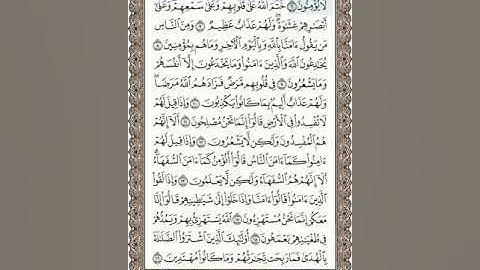 لَا يُؤْمِنُونَ ٦ خَتَمَ ٱللَّهُ عَلَىٰ قُلُوبِهِمْ وَعَلَىٰ سَمْعِهِمْ ۖ وَعَلَىٰٓ
أَبْصَٰرِهِمْ غِشَٰوَةٌ ۖ وَلَهُمْ عَذَابٌ عَظِيمٌ ٧ وَمِنَ ٱلنَّاسِ
مَن يَقُولُ ءَامَنَّا بِٱللَّهِ وَبِٱلْيَوْمِ ٱلْءَاخِرِ وَمَا هُم بِمُؤْمِنِينَ ٨
يُخَٰدِعُونَ ٱللَّهَ وَٱلَّذِينَ ءَامَنُوا۟ وَمَا يَخْدَعُونَ إِلَّآ أَنفُسَهُمْ
وَمَا يَشْعُرُونَ ٩ فِى قُلُوبِهِم مَّرَضٌ فَزَادَهُمُ ٱللَّهُ مَرَضًا ۖ
وَلَهُمْ عَذَابٌ أَلِيمٌۢ بِمَا كَانُوا۟ يَكْذِبُونَ ١٠ وَإِذَا قِيلَ لَهُمْ
لَا تُفْسِدُوا۟ فِى ٱلْأَرْضِ قَالُوٓا۟ إِنَّمَا نَحْنُ مُصْلِحُونَ ١١ أَلَآ إِنَّهُمْ
هُمُ ٱلْمُفْسِدُونَ وَلَٰكِن لَّا يَشْعُرُونَ ١٢ وَإِذَا قِيلَ لَهُمْ
ءَامِنُوا۟ كَمَآ ءَامَنَ ٱلنَّاسُ قَالُوٓا۟ أَنُؤْمِنُ كَمَآ ءَامَنَ ٱلسُّفَهَآءُ ۗ
أَلَآ إِنَّهُمْ هُمُ ٱلسُّفَهَآءُ وَلَٰكِن لَّا يَعْلَمُونَ ١٣ وَإِذَا لَقُوا۟
ٱلَّذِينَ ءَامَنُوا۟ قَالُوٓا۟ ءَامَنَّا وَإِذَا خَلَوْا۟ إِلَىٰ شَيَٰطِينِهِمْ قَالُوٓا۟ إِنَّا
مَعَكُمْ إِنَّمَا نَحْنُ مُسْتَهْزِءُونَ ١٤ ٱللَّهُ يَسْتَهْزِئُ بِهِمْ وَيَمُدُّهُمْ
فِى طُغْيَٰنِهِمْ يَعْمَهُونَ ١٥ أُو۟لَٰٓئِكَ ٱلَّذِينَ ٱشْتَرَوُا۟ ٱلضَّلَٰلَةَ
بِٱلْهُدَىٰ فَمَا رَبِحَت تِّجَٰرَتُهُمْ وَمَا كَانُوا۟ مُهْتَدِينَ ١٦